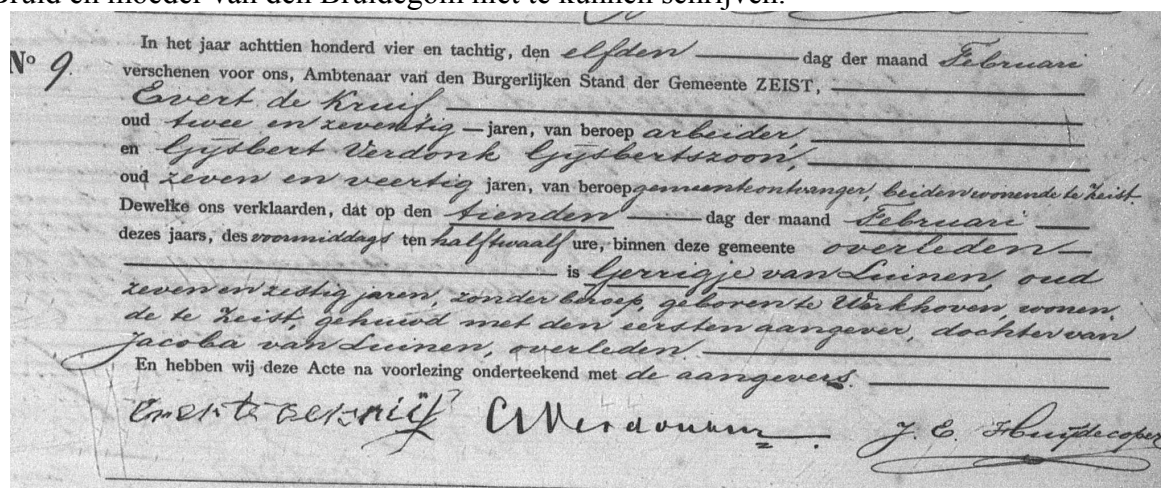 Bruid en moeder van den Bruidegom niet te kunnen schrijven.
No 9.
In het jaar achttien honderd vier en tachtig, den elfden dag der maand Februari
verschenen voor ons, Ambtenaar van den Burgerlijken Stand der Gemeente ZEIST,
Evert de Kruif,
oud twee en zeventig jaren, van beroep arbeider,
en Gijsbert Verdonk Gijsbertszoon,
oud zeven en veertig jaren, van beroep gemeenteontvanger, beiden wonende te Zeist
Dewelke ons verklaarden, dat op den tienden dag der maand Februari
dezes jaars, des voormiddags ten half twaalf ure, binnen deze gemeente overleden
is Gerrigje van Luinen, oud
zeven en zestig jaren, zonder beroep, geboren te Werkhoven, wonen,
de te Zeist, gehuwd met den eersten aangever, dochter van
Jacoba van Luinen, overleden.
En hebben wij deze Acte na voorlezing onderteekend met de aangevers.
J. E. Huydecoper